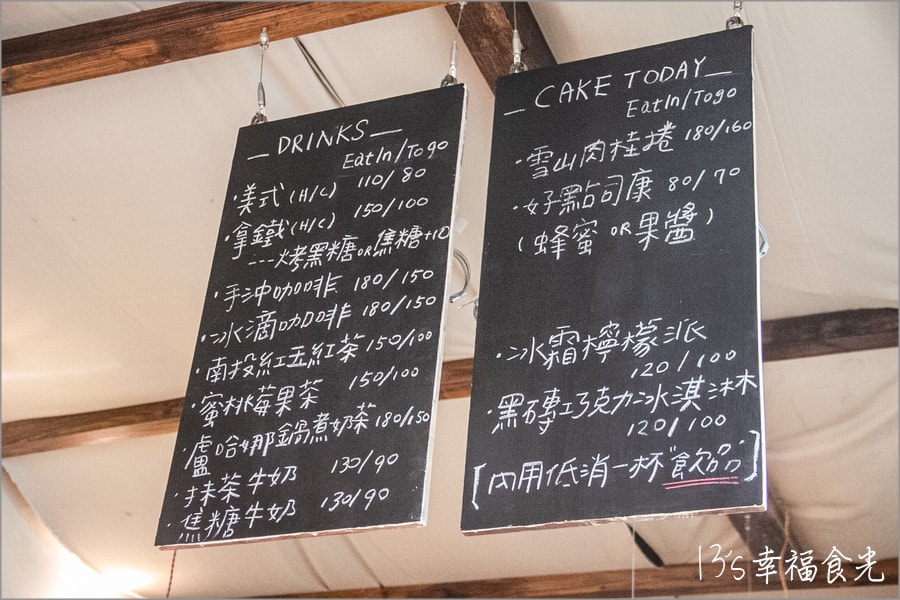 DRINKS
EatIn/Togo
·美式(H/C) 110/80
·拿鐵(H/C) 150/100
---烤黑糖OR焦糖+10
·手沖咖啡 180/150
·冰滴咖啡 180/150
·南投紅玉紅茶 150/100
·蜜桃莓果茶 150/100
·盧哈娜鍋煮奶茶 180/150
·抹茶牛奶 130/90
·焦糖牛奶 130/90
CAKE TODAY
EatIn/Togo
·雪山肉桂捲 180/160
·好點司康 80/70
(蜂蜜OR果醬)
·冰霜檸檬派
120/100
·黑磚巧克力冰淇淋
120/100
[內用低消一杯"飲品"]
13's幸福食光